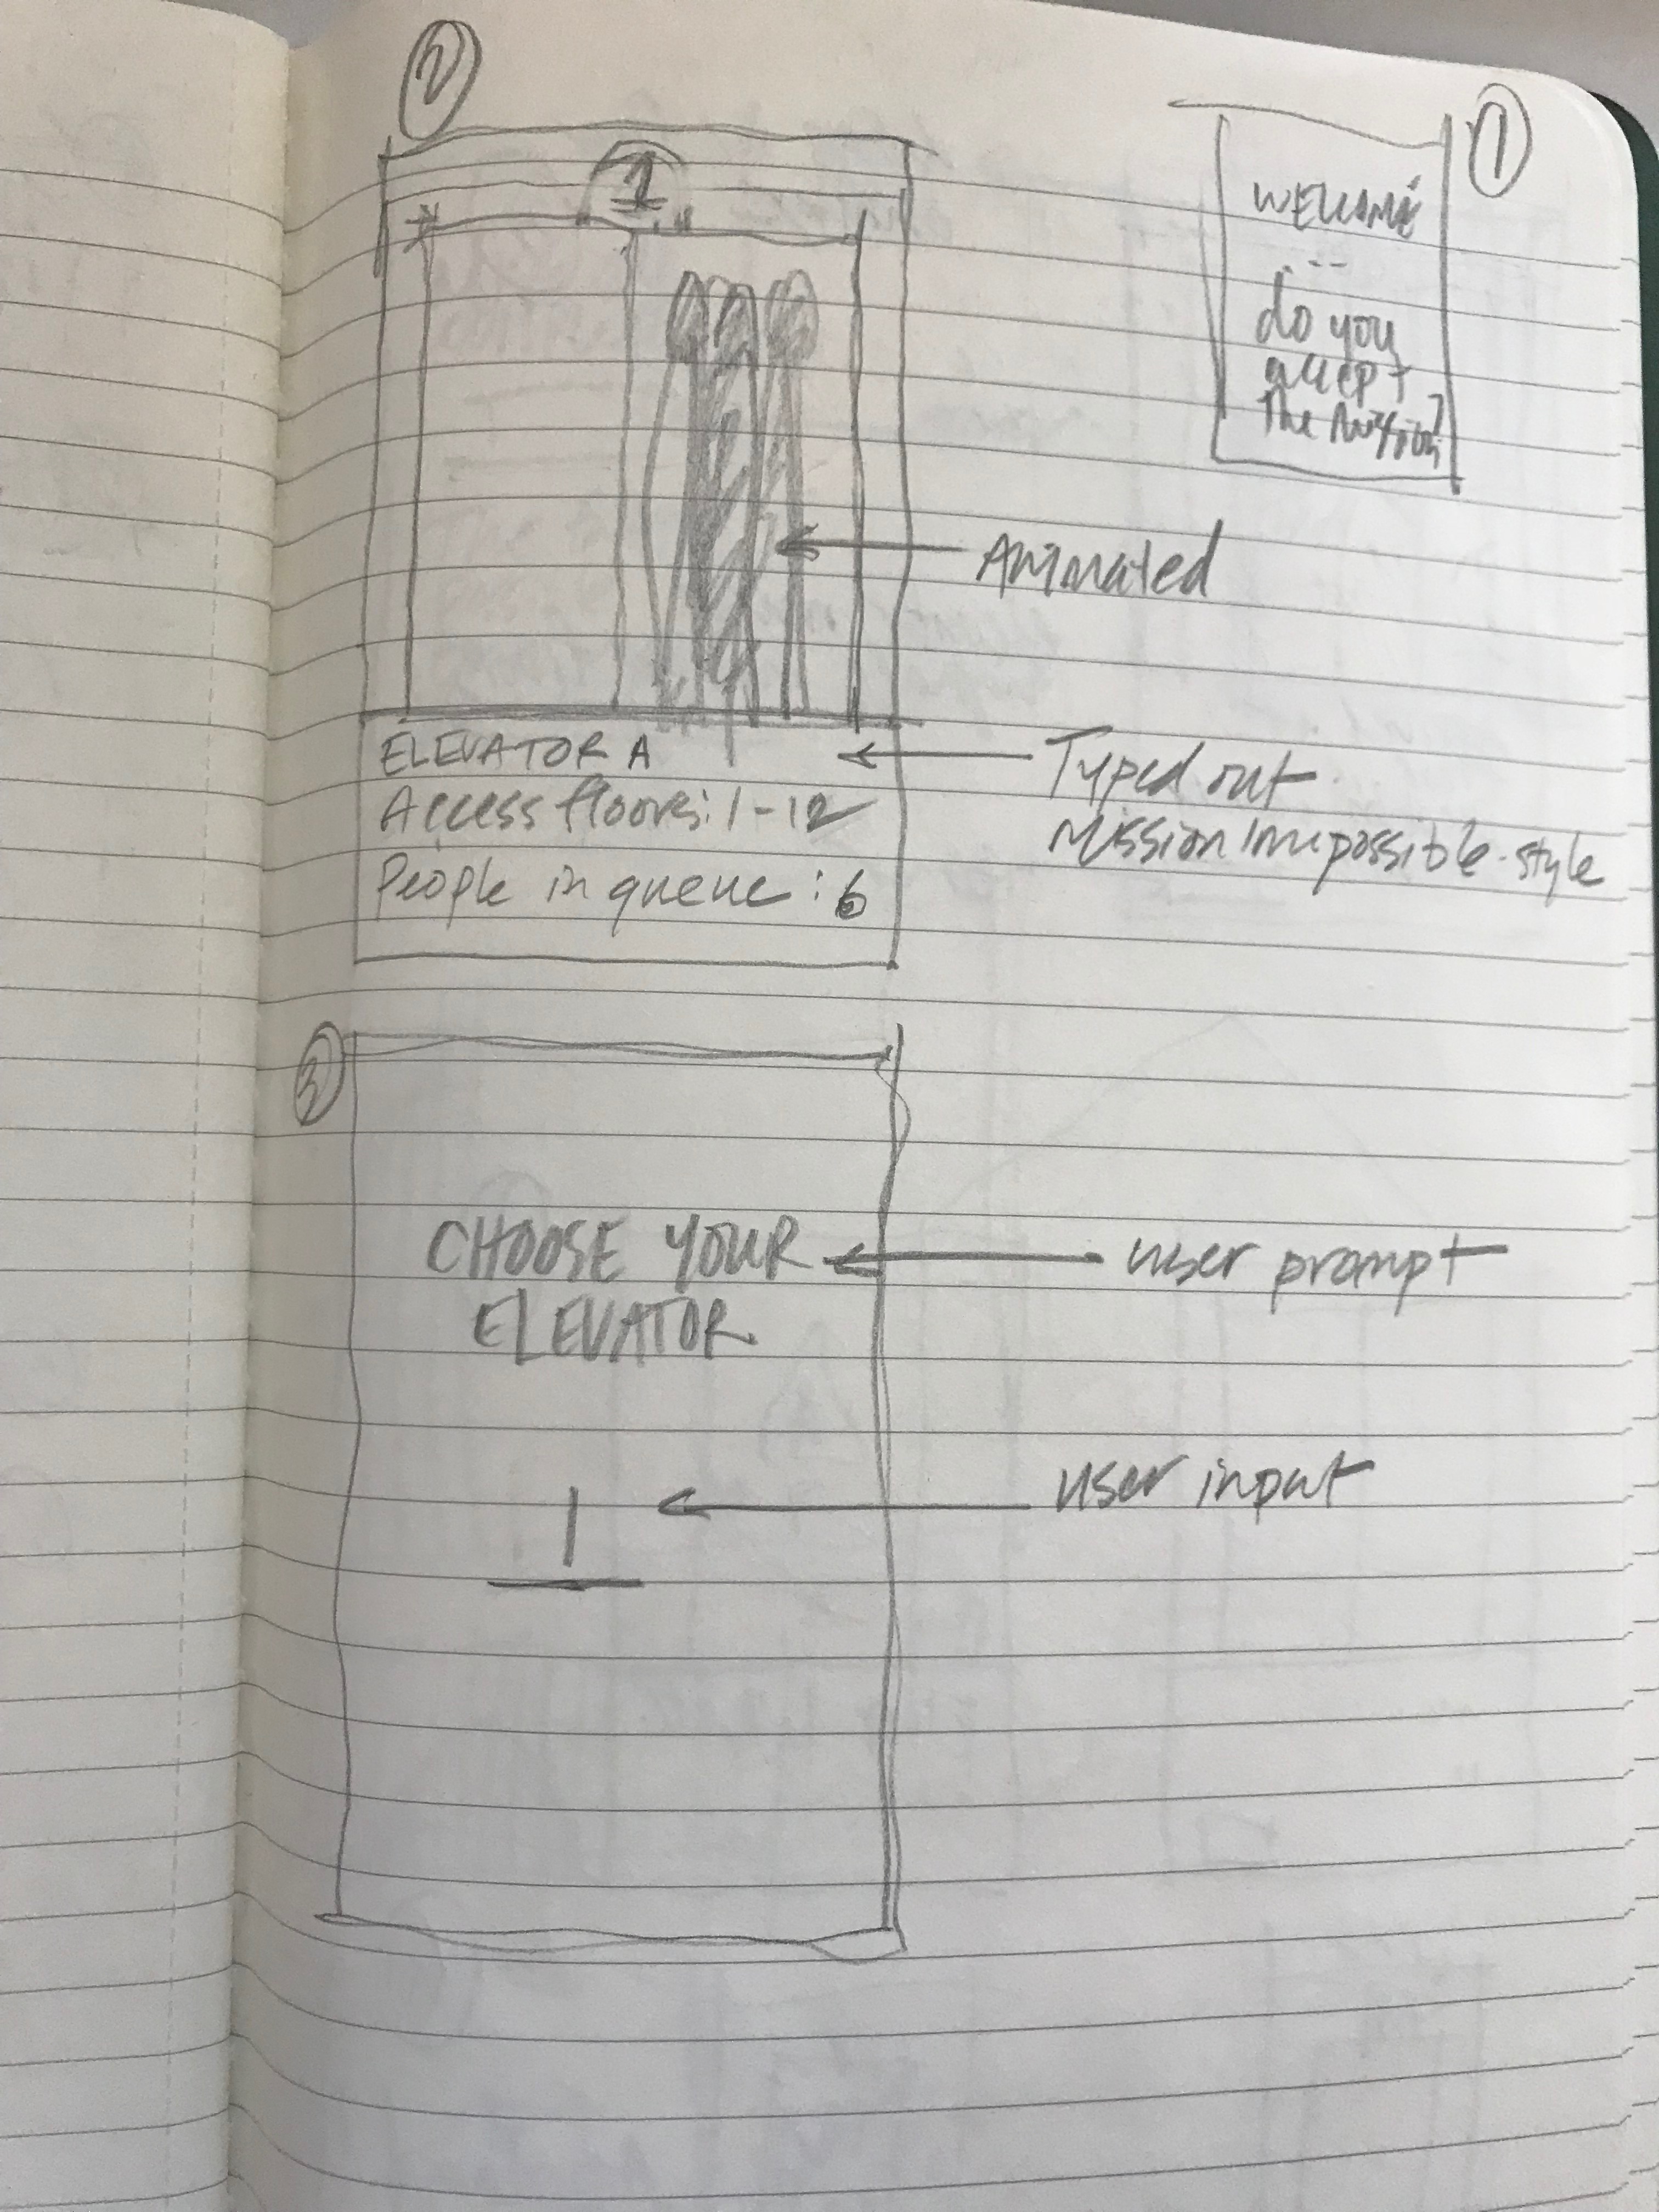 1
WELCOME
...
do you
accept
The Mission?
2
1
Animated
ELEVATOR A
Access floors: 1-12
People in queue: 6
Typed out
Mission Impossible-style
3
CHOOSE YOUR
ELEVATOR
user prompt
user input